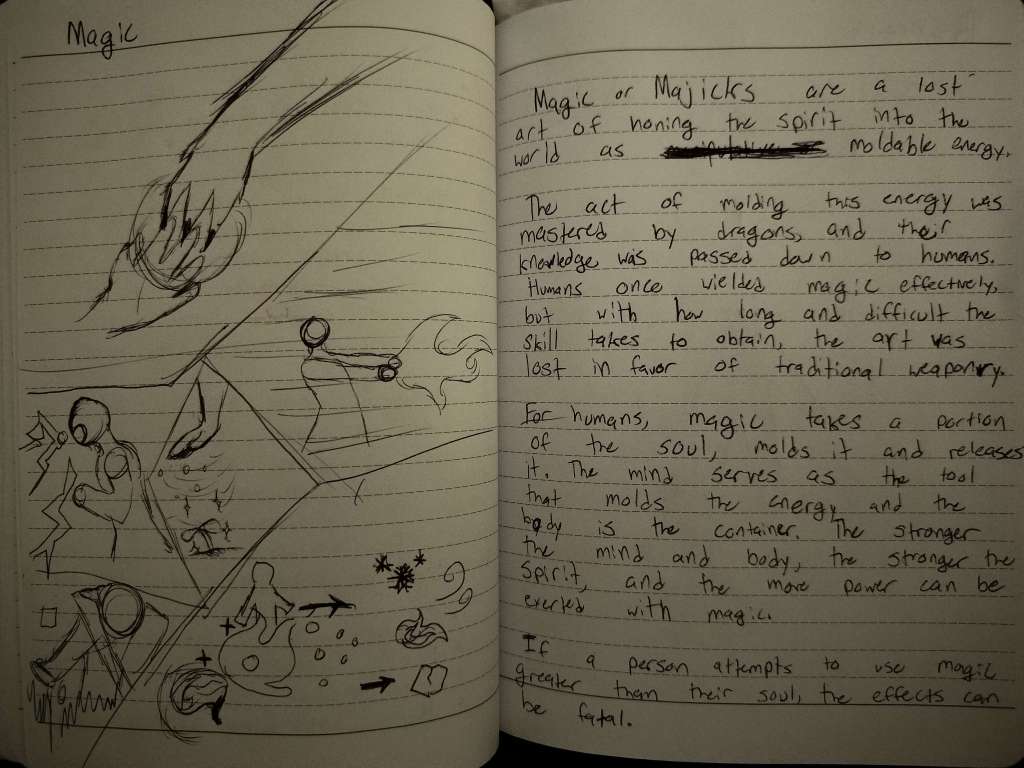 Magic
Magic or Majicks are a lost
art of honing the spirit into the
world as moldable energy.
The act of molding this energy was
mastered by dragons, and their
knowledge was passed down to humans.
Humans once wielded magic effectively,
but with how long and difficult the
skill takes to obtain, the art was
lost in favor of traditional weaponry.
For humans, magic takes a portion
of the soul, molds it and releases
it. The mind serves as the tool
that molds the energy and the
body is the container. The stronger
the mind and body, the stronger the
spirit, and the more power can be
exerted with magic.
If a person attempts to use magic
greater than their soul, the effects can
be fatal.